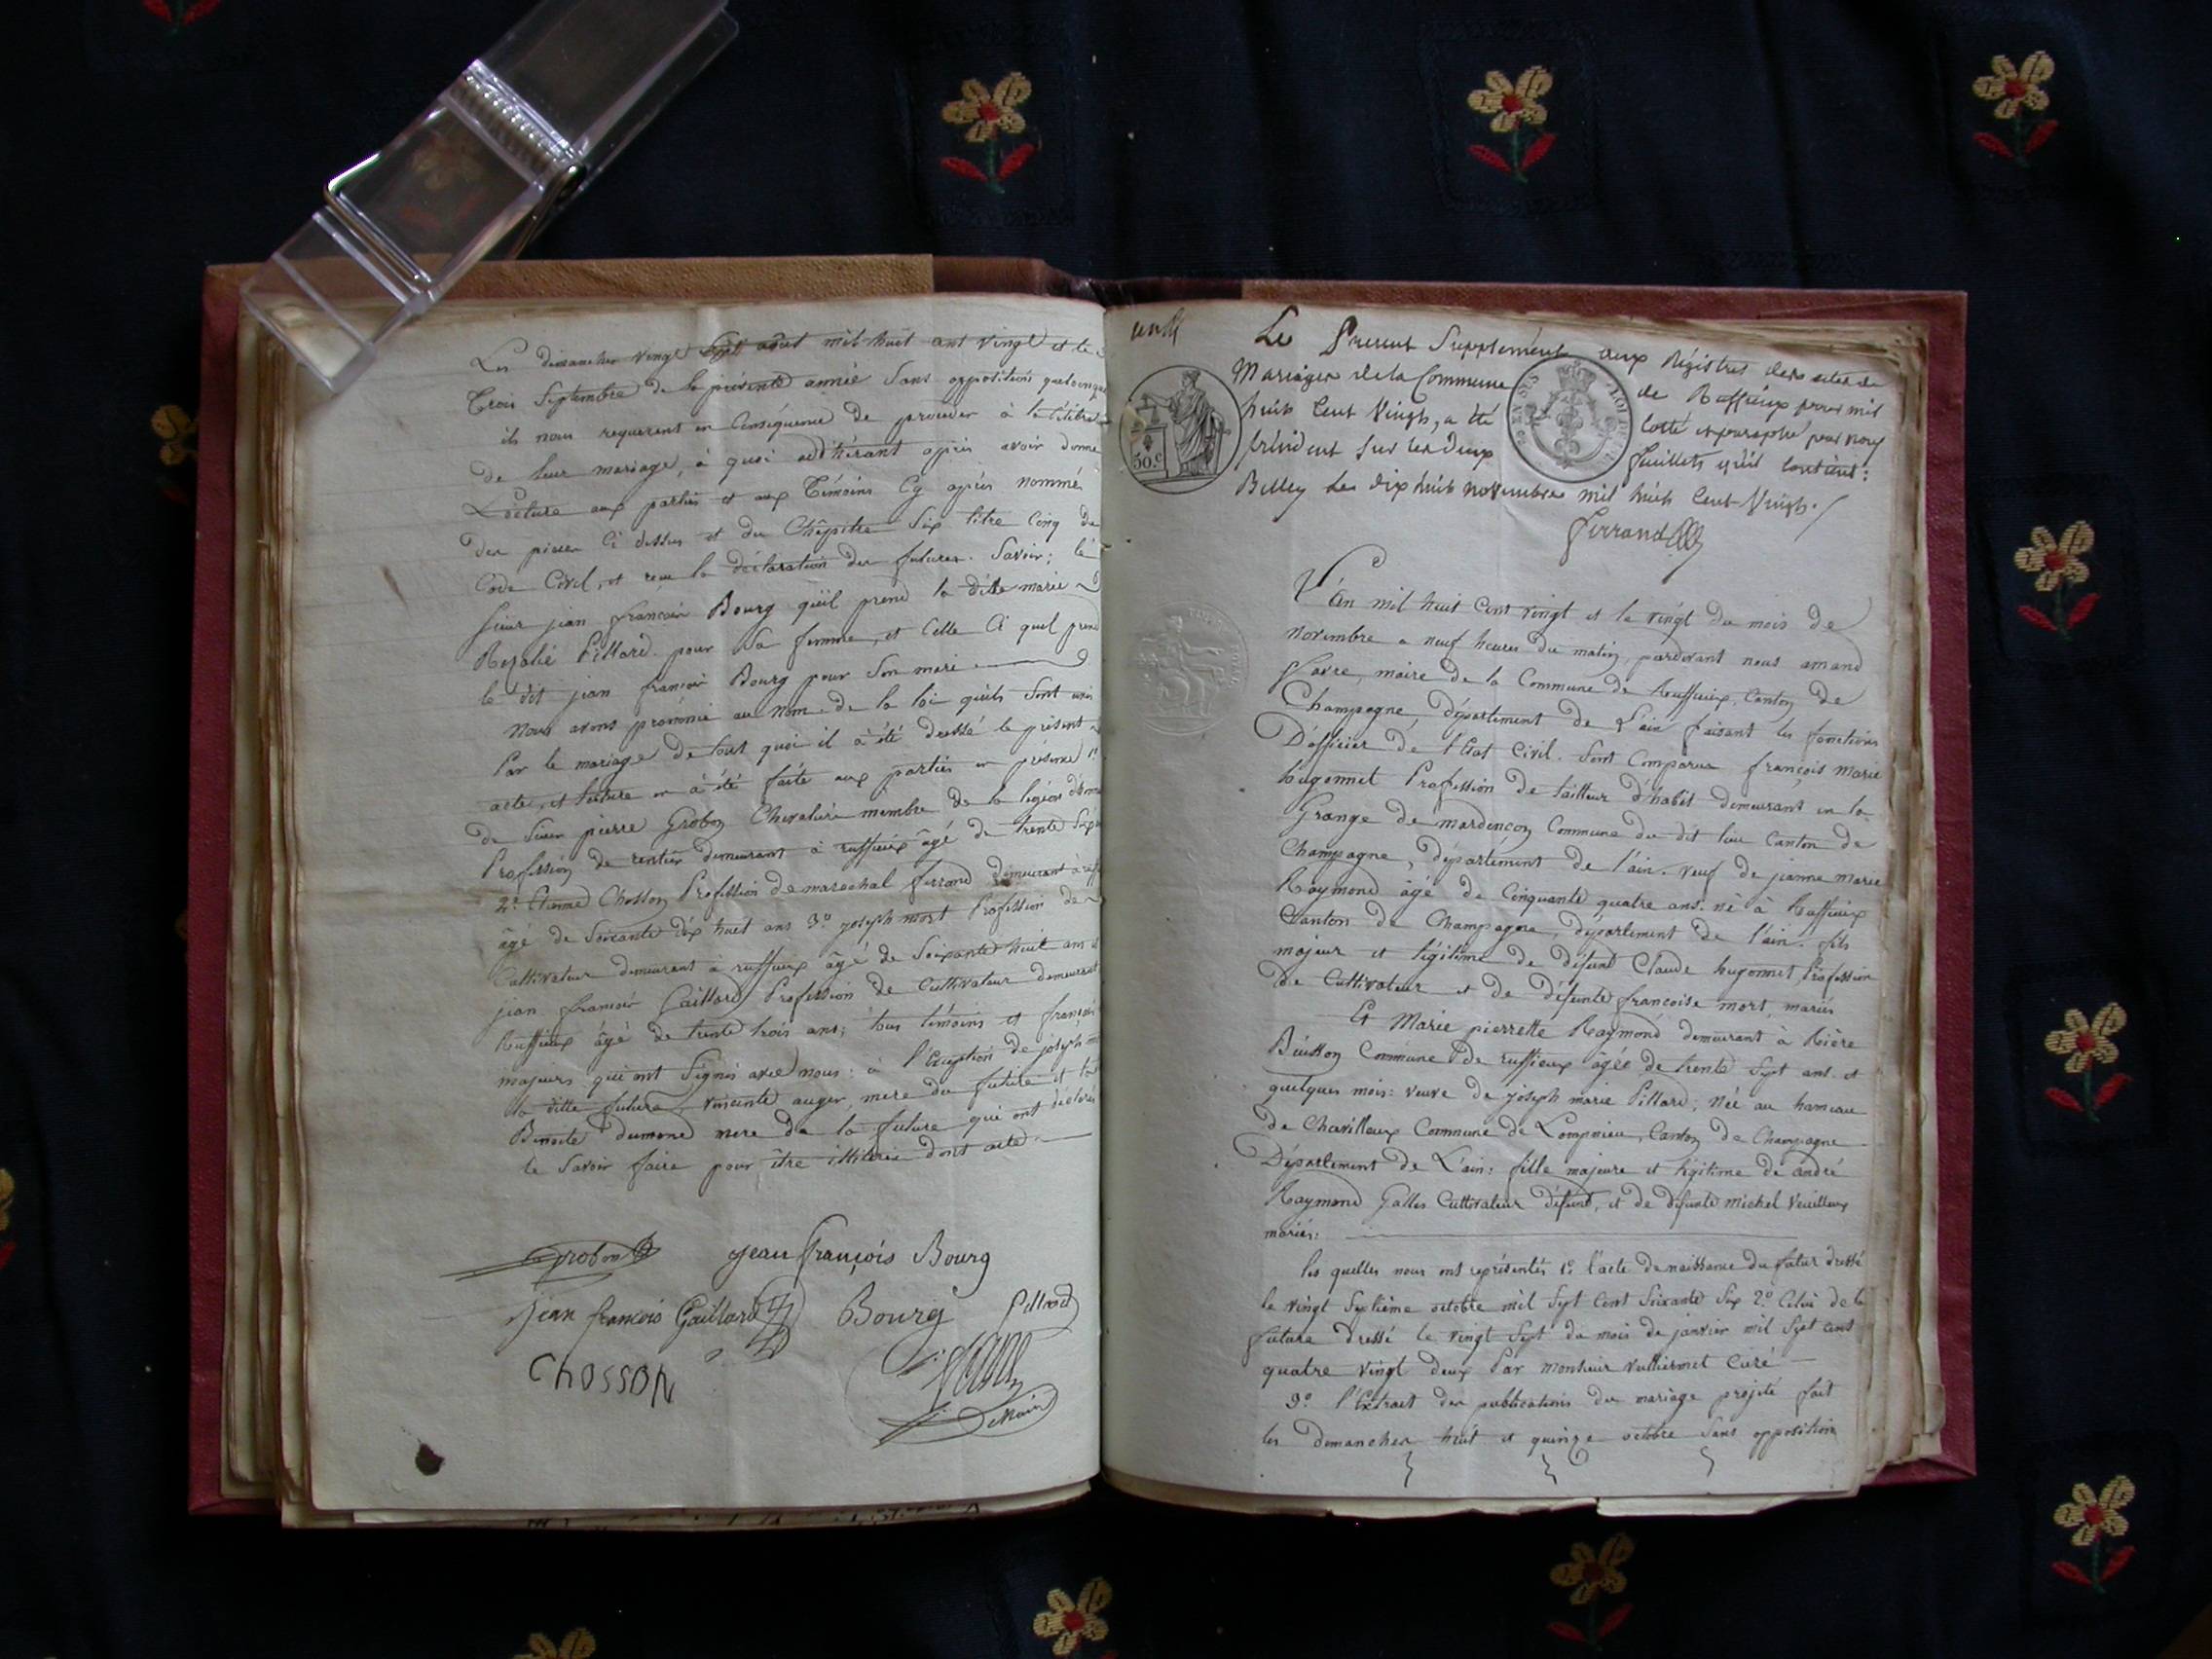 Les dimanches vingt sept août mil huit cent vingt et le
trois Septembre de la présente année Sans opposition quelconque
ils nous requerent en Conséquence de proceder à la célébra
de leur mariage, à quoi addhérant après avoir donné
Lecture aux parties et aux Témoins Cy après nommés
des pieces Ci dessus et du Châpitre Six titre Cinq du
Code Civil, et reçu la déclaration des futures. Savoir; le
Sieur jean françois Bourg qu'il prend la ditte marie
Rozalie Pillard pour Sa femme, et Celle Ci quel prend
le dit jean françois Bourg pour Son mari
Nous avons prononcé au nom de la loi qu'ils Sont unis
Par le mariage de tout quoi il à été dressé le présent
acte, et lecture en à été faite aux parties en présence 1°
de Sieur pierre Grobon Chevalier membre de la légion d'honn
Profession de rentier demeurant à ruffieux âgé de trente Six
2° Etienne Chosson Profession de marechal ferrand demeurant à ruff
âgé de Soixante dix huit ans 3° joseph mort Profession de
Cultivateur demeurant à ruffieux âgé de Soixante huit ans
jean françois Gaillard Profession de Cultivateur demeurant
Ruffieux âgé de trente trois ans; tous témoins et français
majeurs qui ont Signés avec nous: à l'Exception de joseph
la ditte future, vincente auger, mere du future et la
Benoite dumond mere de la future qui ont déclarés
le Savoir faire pour être illiteré dont acte
Grobon jean françois Bourg
jean francois Gaillard Bourg Pillard
Chosson
Maire
Le Present Supplément aux Régistres des actes de
Mariages de la Commune de Ruffieux pour mil
huit Cent Vingt, a été cotté et paraphé par nous
président sur les deux feuillets qu'il contient:
Belley le dix huit novembre mil huit Cent Vingt.
Ferrand
50.c
L'an mil huit Cent vingt et le vingt du mois de
novembre a neuf heures du matin, pardevant nous amand
favre, maire de la Commune de Ruffieux, Canton de
Champagne, département de L'ain faisant les fonctions
D'officier de l'Etat Civil. Sont Comparus françois Marie
hugonnet Profession de tailleur d'habit demeurant en la
Grange de mardencon Commune du dit lieu Canton de
Champagne, Département de l'ain. veuf de jeanne marie
Raymond âgé de Cinquante quatre ans. né à Ruffieux
Canton de Champagne, département de l'ain. fils
majeur et légitime de défunt Claude hugonnet Profession
de Cultivateur et de défunte françoise mort, mariés
Et Marie pierrette Raymond demeurant à Rière
Buisson Commune de ruffieux âgée de trente Sept ans et
quelques mois: veuve de joseph marie Pillard; Née au hameau
de Charilloux Commune de Lompnieu, Canton de Champagne
Département de L'ain: fille majeure et légitime de andré
Raymond Galles Cultivateur défunt, et de défunte Michel Veuilloux
mariés:
les quelles nous ont représentés 1° l'acte de naissance du futur dressé
le vingt Septième octobre mil Sept Cent Soixante Six 2° Celui de la
future dressé le vingt Sept du mois de janvier mil Sept cent
quatre vingt deux Par monsieur vulliermet Curé
3° l'Extrait des publications du mariage projeté fait
les dimanches huit et quinze octobre Sans opposition